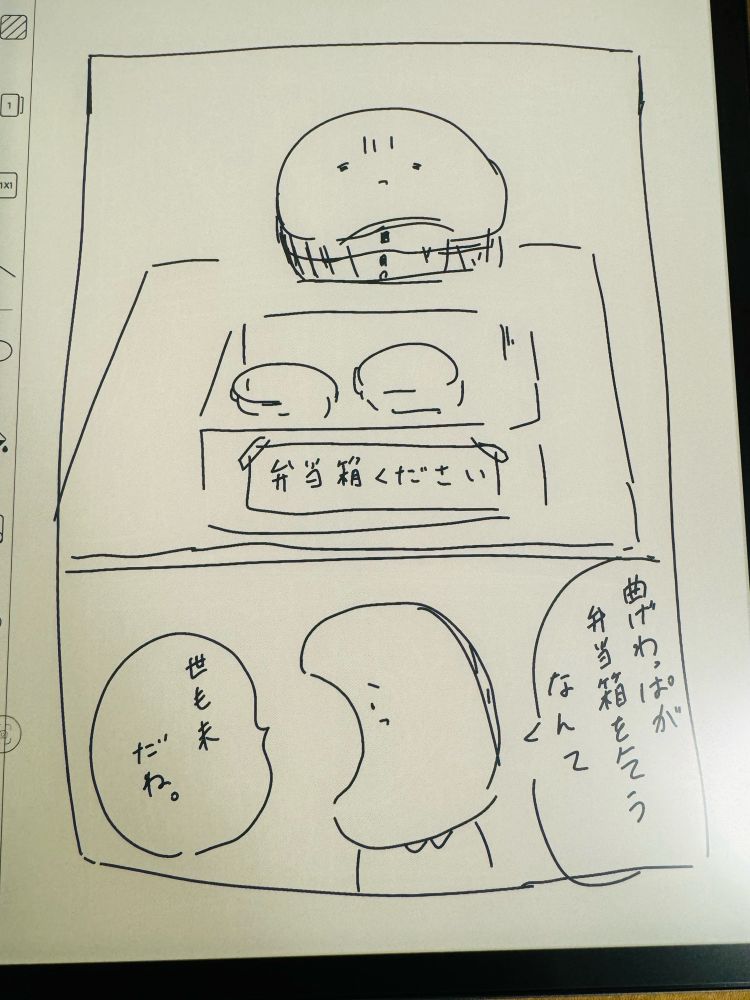 1
1X1
弁当箱ください
曲げわっぱが
弁当箱を乞う
なんて
世も末
だね。